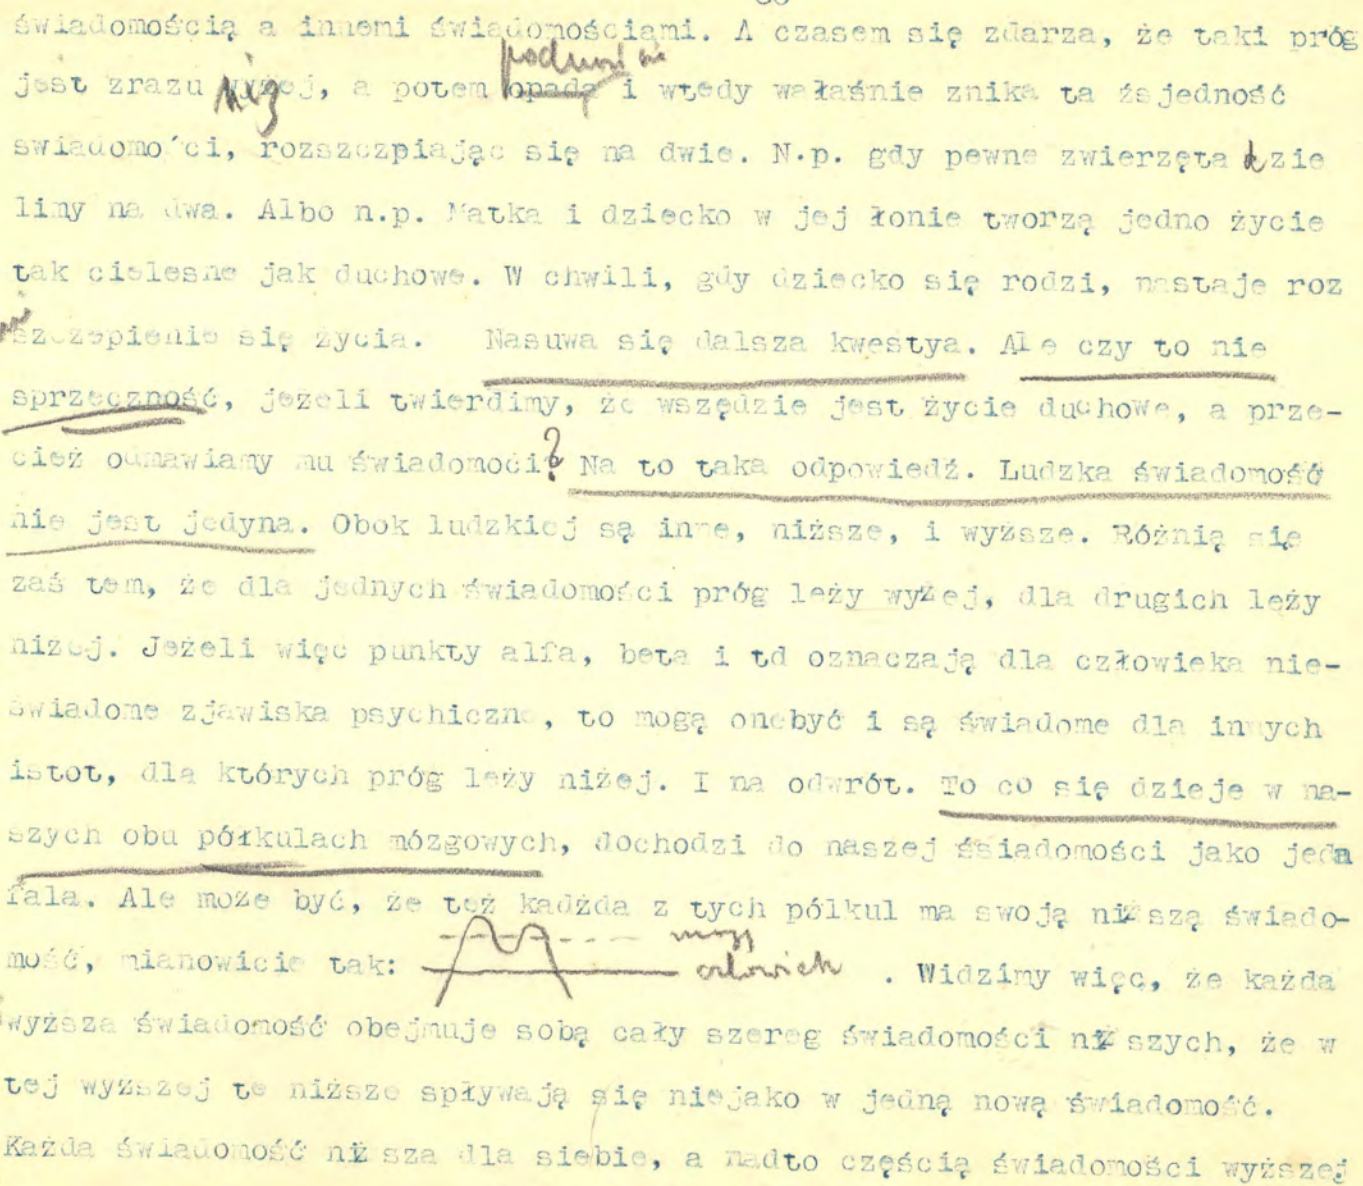 świadomością a innemi świadomościami. A czasem się zdarza, że taki próg
podnosi się
jest zrazu niżej, a potem opada i wtedy wałaśnie znika ta żsjedność
swiadomo'ci, rozszczpiając się na dwie. N.p. gdy pewne zwierzęta dzie
limy na dwa. Albo n.p. Matka i dziecko w jej łonie tworzą jedno życie
tak cielesne jak duchowe. W chwili, gdy dziecko się rodzi, nastaje roz
szczepienie się życia. Nasuwa się dalsza kwestya. Ale czy to nie
sprzeczność, jeżeli twierdimy, że wszędzie jest życie duchowe, a prze-
cież odmawiamy mu świadomoci? Na to taka odpowiedź. Ludzka świadomość
nie jest jedyna. Obok ludzkiej są inne, niższe, i wyższe. Różnią się
zaś tem, że dla jednych świadomości próg leży wyżej, dla drugich leży
niżej. Jeżeli więc punkty alfa, beta i td oznaczają dla człowieka nie-
świadome zjawiska psychiczne, to mogą onebyć i są świadome dla innych
istot, dla których próg leży niżej. I na odwrót. To co się dzieje w na-
szych obu półkulach mózgowych, dochodzi do naszej śsiadomości jako jedna
fala. Ale może być, że też kadżda z tych pólkul ma swoją niższą świado-
mózg
mość, mianowicie tak: człowiek . Widzimy więc, że każda
wyższa świadomość obejmuje sobą cały szereg świadomości niższych, że w
tej wyższej te niższe spływają się niejako w jedną nową świadomość.
Każda świadomość niższa dla siebie, a nadto częścią świadomości wyższej